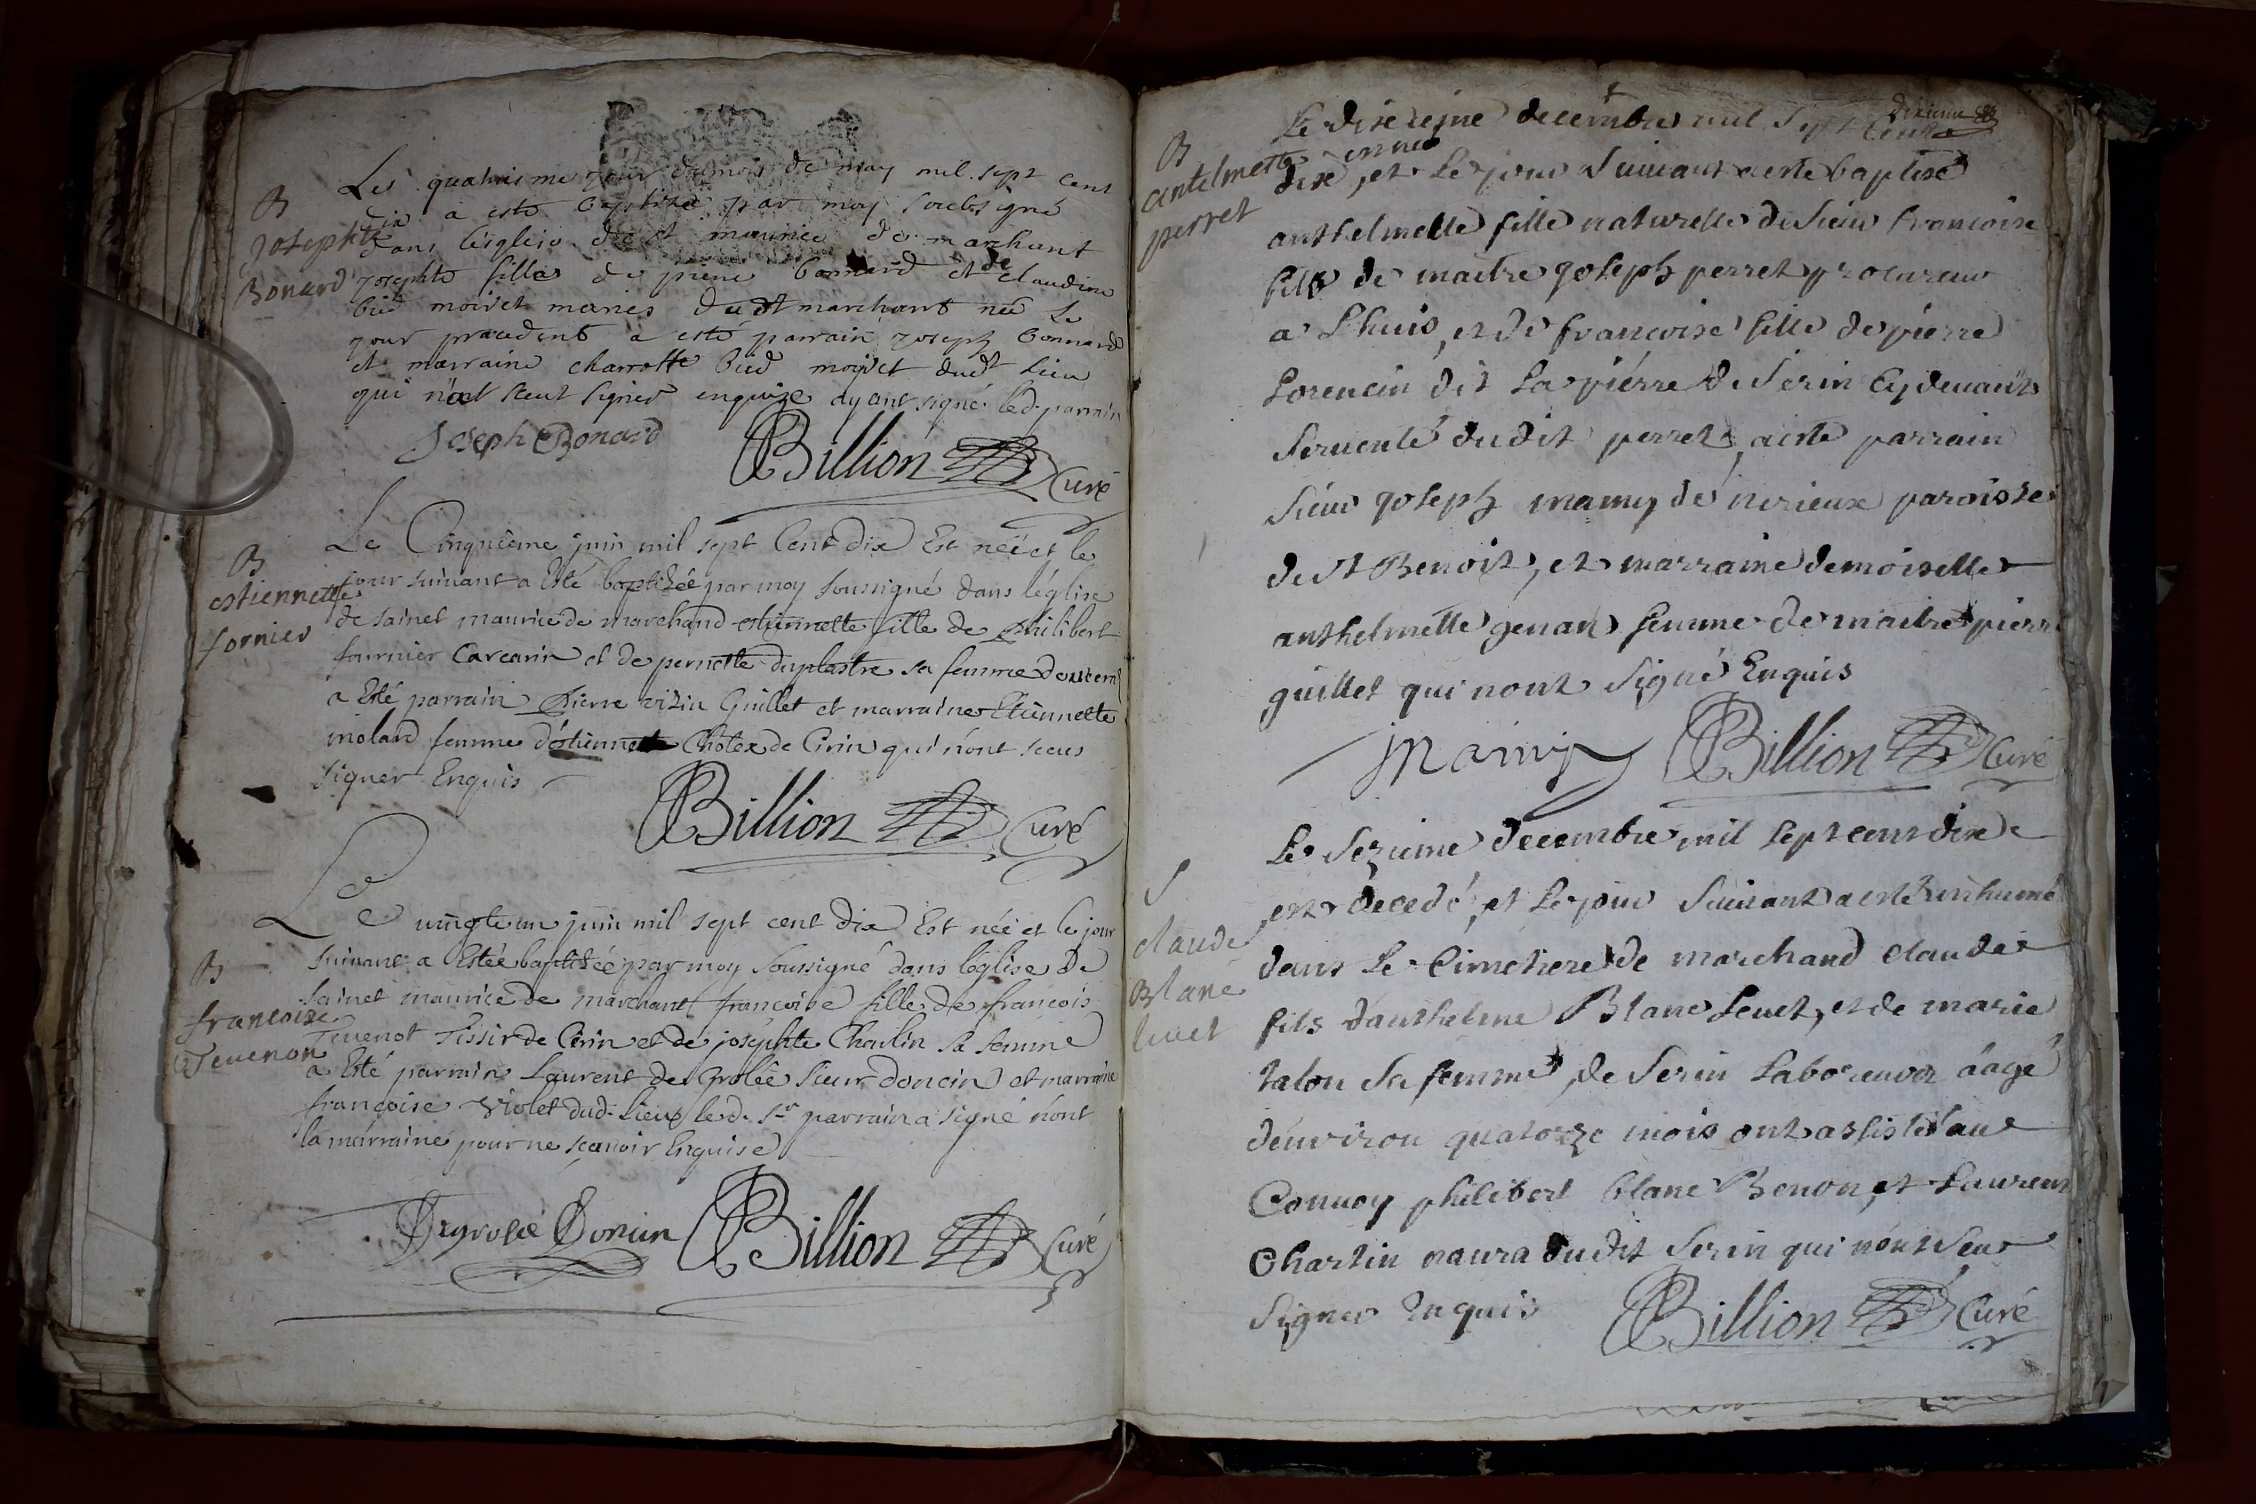 B
Josephte
Bonard
Les quatriesme jour du mois de may mil sept cent
dix a esté baptisé par moy soubsigné
dans l'esglise de st maurice de marchant
josephte fille de pierre bonnard et de claudine
bied moiret mariés dudt marchant née le
jour precedent a esté parrain joseph bonnard
et marraine charrotte bied moiret dudt lieu
qui n'a sceut signer enquize ayant signé led. parrain
Joseph Bonard Billion Curé
B
estiennette
fornier
Le Cinquième juin mil sept Cent dix Est néé et le
jour suivant a Esté baptizée par moy soussigné dans l'églize
de sainct maurice de marchand estiennette fille de Philibert
fournier Carcarin et de pernette duplastre sa femme
a Esté parrain Pierre vizin Guillet et marraine Etiennette
molard femme d'éstienne Cholex de Cirin qui n'ont sceus
signer Enquis
Billion Curé
B
francoize
Teuenon
Le uingte un juin mil sept cent dix Est néé et le jour
suiuant a Estée baptizée par moy soussigné dans l'église de
sainct maurice de marchant françoise fille de francois
Teuenot Tissir de Cirin et de joséphte Charlin sa femme
a Esté parrain Laurent de Grolée sieur doncin et marraine
françoise Violet dud. lieux led. sr parrain a signé n'ont
la marraine pour ne sçauoir Enquise
Degrolée Doncin Billion Curé
B
antelmette
perret
Le dixseizeine decembre mil sept Cent
dixieme
est née
dix, et le jour suiuant a esté baptisé
anthelmette fille naturelle de sieur francoise
fils de maitre joseph perret procureur
a Lhuis, et de francoise fille de pierre
Lorencin dit La piérre de Serin Cy deuant
seruente dudit perret, a esté parrain
sieur joseph mamy de nerieux paroisse
de st Benoit, et marraine demoiselle
anthelmette genan femme de maitre pierre
guillet qui nont signé Enquis
Mamy Billion Curé
S
claude
Blanc
leuet
Le sezieme decembre mil sept cent dix
est décedé, et le jour suiuant a esté inhumé
dans le Cimetiere de marchand claude
fils d'anthelme Blanc Leuet, et de marie
talon sa femme, de Serin Laboureur âagé
d'enuiron quatorze mois ont assisté au
Conuoy philibert blanc Benon, et Laurent
Charlin naura dudit Serin qui n'ont seu
signer Enquis Billion Curé